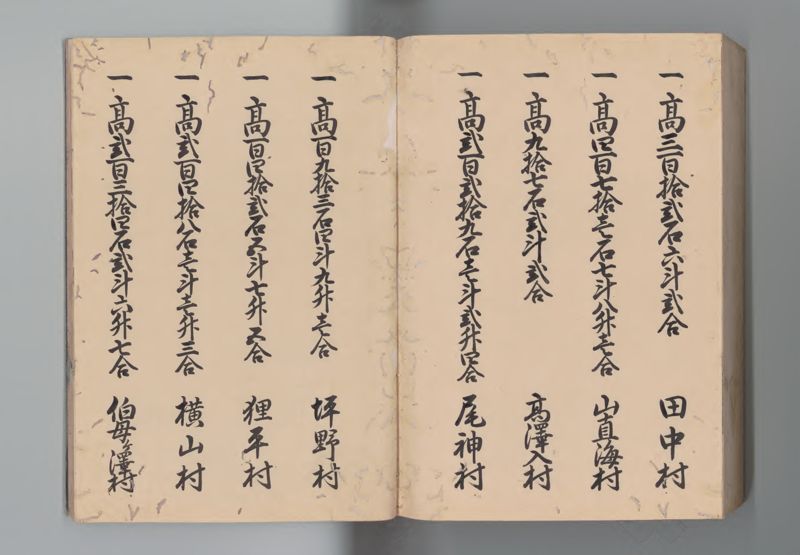 一高三百拾弐石六斗弐合 田中村
一高四百七拾壱石七斗八升壱合 山真海村
一高九拾七石弐斗弐合 高澤入村
一高弐百弐拾九石壱斗弐升四合 尾神村
一高百九拾三石四斗九升壱合 坪野村
一高百四拾弐石五斗七升五合 狸平村
一高弐百四拾八石壱斗壱升三合 横山村
一高弐百三拾四石弐斗六升七合 伯母ヶ澤村